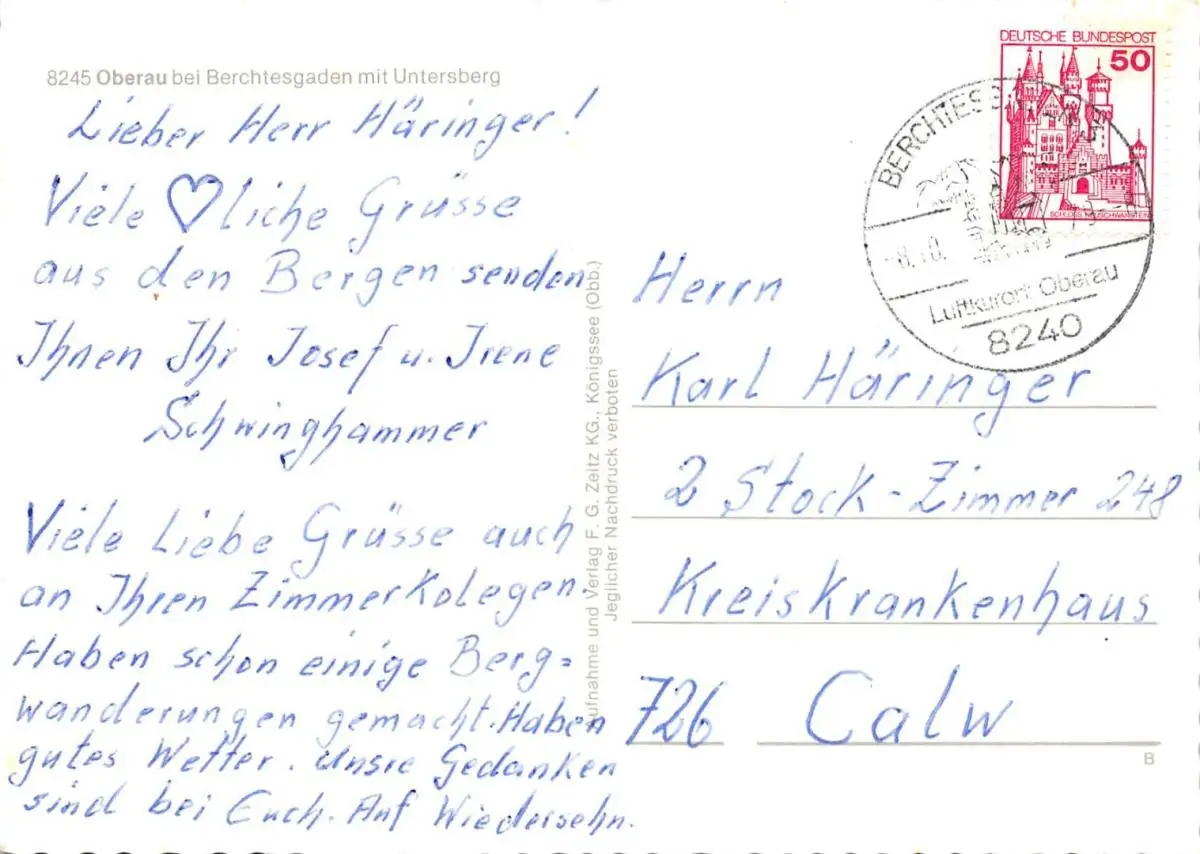 8245 Oberau bei Berchtesgaden mit Untersberg
Lieber Herr Häringer!
Viele ♡liche Grüsse
aus den Bergen senden
Ihnen Ihr Josef u. Irene
Schwinghammer
Viele Liebe Grüsse auch
an Ihren Zimmerkolegen.
Haben schon einige Berg=
wanderungen gemacht. Haben
gutes Wetter. Unsre Gedanken
sind bei Euch. Auf Wiedersehn.
Aufnahme und Verlag F. G. Zeitz KG., Königssee (Obb.)
Jeglicher Nachdruck verboten
DEUTSCHE BUNDESPOST
50
SCHLOSS NEUSCHWANSTEIN
Luftkurort Oberau
8240
Herrn
Karl Häringer
2 Stock - Zimmer 248
Kreiskrankenhaus
726 Calw
B